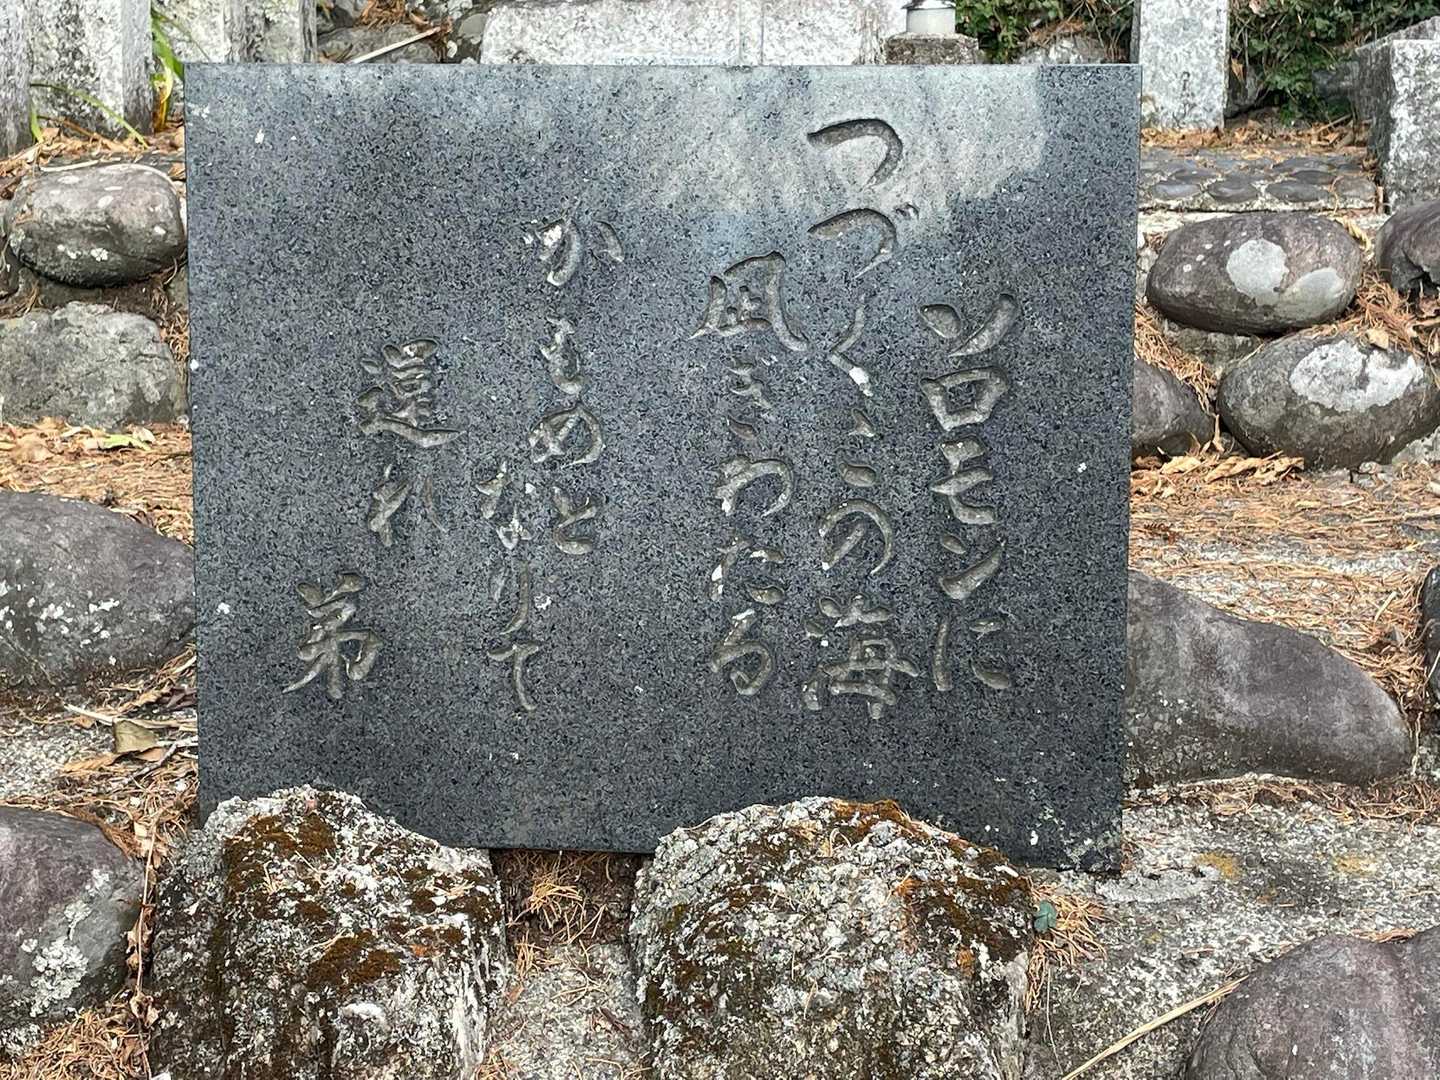 ソロモンに
つづくこの海
凪ぎわたる
かもめと
なりて
還れ
弟